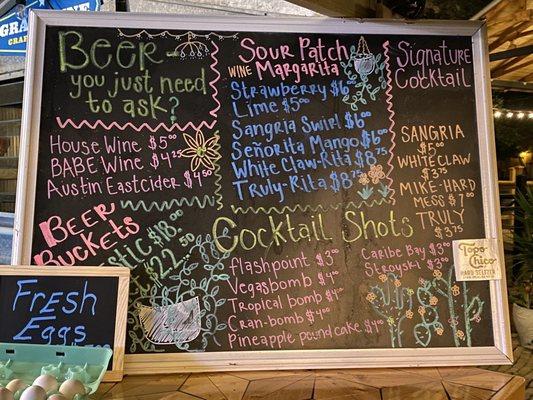 Beer-
you just need
to ask?
House Wine $5.00
BABE Wine $4.25
Austin Eastcider $4.50
Beer
Buckets
$18.00
22.50
Sour Patch
Wine Margarita
Strawberry $6
Lime $5.00
Sangria Swirl $6.00
Señorita Mango $6.00
White Claw-Rita $8
Truly-Rita $8.00
Signature
Cocktail
Sangria
$5.00
White Claw
$3.75
Mike-Hard
Mess $4.00
Truly
$3.75
Cocktail Shots
flashpoint $3.00
Vegasbomb $4.00
Tropical bomb $4.00
Cran-bomb $4.00
Pineapple pound cake $4.00
Caribe Bay $3.00
Stroyski $4.00
Topo
Chico
Hard Seltzer
Fresh
Eggs